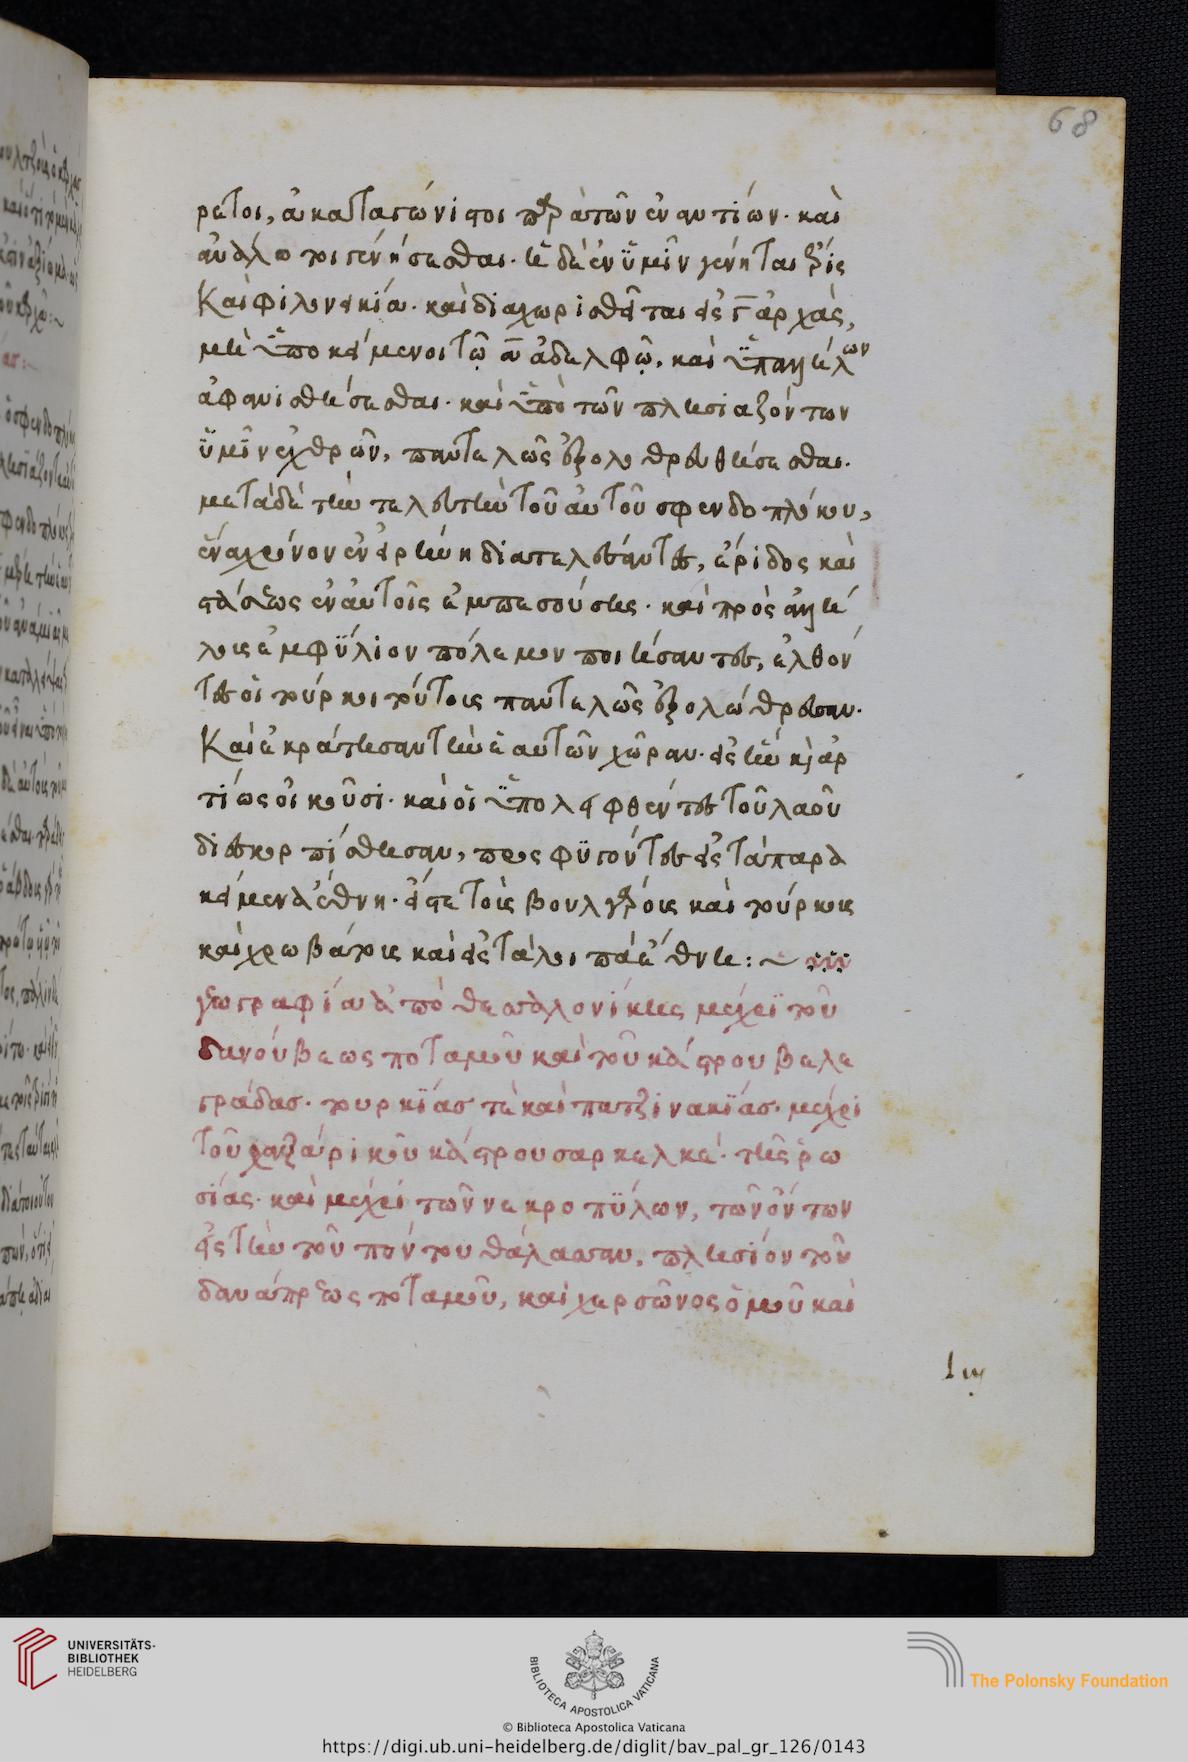 68
ρετοι, ἀκαταγώνιστοι παρὰ τῶν ἐναντίων. καὶ
ἀνάλωτοι γενήσεσθαι. εἰ δὲ ἐν ὑμῖν γένηται ἔρις
Καὶ φιλονεικία. καὶ διαχωρισθεῖται εἰς γ̄ ἀρχὰς,
μὴ ὑποκείμενοι τῷ ᾱ ἀδελφῷ, καὶ ὑπ' ἀγγέλων
ἀφανισθήσεσθαι. καὶ ὑπὸ τῶν πλησιαζόντων
ὑμῖν ἐχθρῶν, παντελῶς ἐξολοθρευθήσεσθαι.
μετὰ δὲ τὴν τελευτὴν τοῦ αὐτοῦ σφενδοπλόκου,
ἕνα χρόνον ἐν εἰρήνῃ διατελέσαντες, ἔριδος καὶ
στάσεως ἐν αὐτοῖς ἐμπεσούσης. καὶ πρὸς ἀλλή
λοις ἐμφύλιον πόλεμον ποιήσαντες, ἐλθόν
τες οἱ τούρκοι τούτοις παντελῶς ἐξολώθρευσαν.
Καὶ ἐκράτησαν τὴν ἑαυτῶν χῶραν. εἰς ἣν κ(αὶ) ἀρ
τίως οἰκοῦσι. καὶ οἱ ὑπολειφθέντες τοῦ λαοῦ
διεσκορπίσθησαν, προσφυγόντες εἰς τὰ παρα
κείμενα ἔθνη. εἴς τε τοὺς βουλγάρους καὶ τούρκους
καὶ χρωβάτους καὶ εἰς τὰ λοιπὰ ἔθνη: ~
γεωγραφία ἀπὸ θεσσαλονίκης μέχρι τοῦ
δανούβεως ποταμοῦ καὶ τοῦ κάστρου βελε
γράδας. τουρκίας τὲ καὶ πατζινακίας. μέχρι
τοῦ χαζαρικοῦ κάστρου σαρκελ κὲ. τῆς ῥω
σίας. καὶ μέχρι τῶν νεκροπύλων, τῶν ὄντων
εἰς τὴν τοῦ πόντου θάλασσαν, πλησίον τοῦ
δανάπρεως ποταμοῦ, καὶ χερσῶνος ὁμοῦ καὶ
UNIVERSITÄTS-
BIBLIOTHEK
HEIDELBERG
BIBLIOTECA APOSTOLICA VATICANA
The Polonsky Foundation
© Biblioteca Apostolica Vaticana
https://digi.ub.uni-heidelberg.de/diglit/bav_pal_gr_126/0143